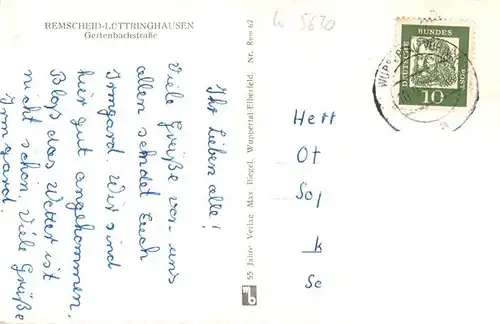 REMSCHEID-LÜTTRINGHAUSEN
Gertenbachstraße
Ihr Lieben alle!
Viele Grüße von uns
allen sendet Euch
Irmgard. Wir sind
hier gut angekommen.
Bloß das Wetter ist
nicht schön. Viele Grüße
Irmgard.
55 Jahre Verlag Max Biegel, Wuppertal-Elberfeld. Nr. Rem 62
mb
5620
DEUTSCHE
BUNDES
10
WUPP
Herr
Ot
Sol
k
Sc